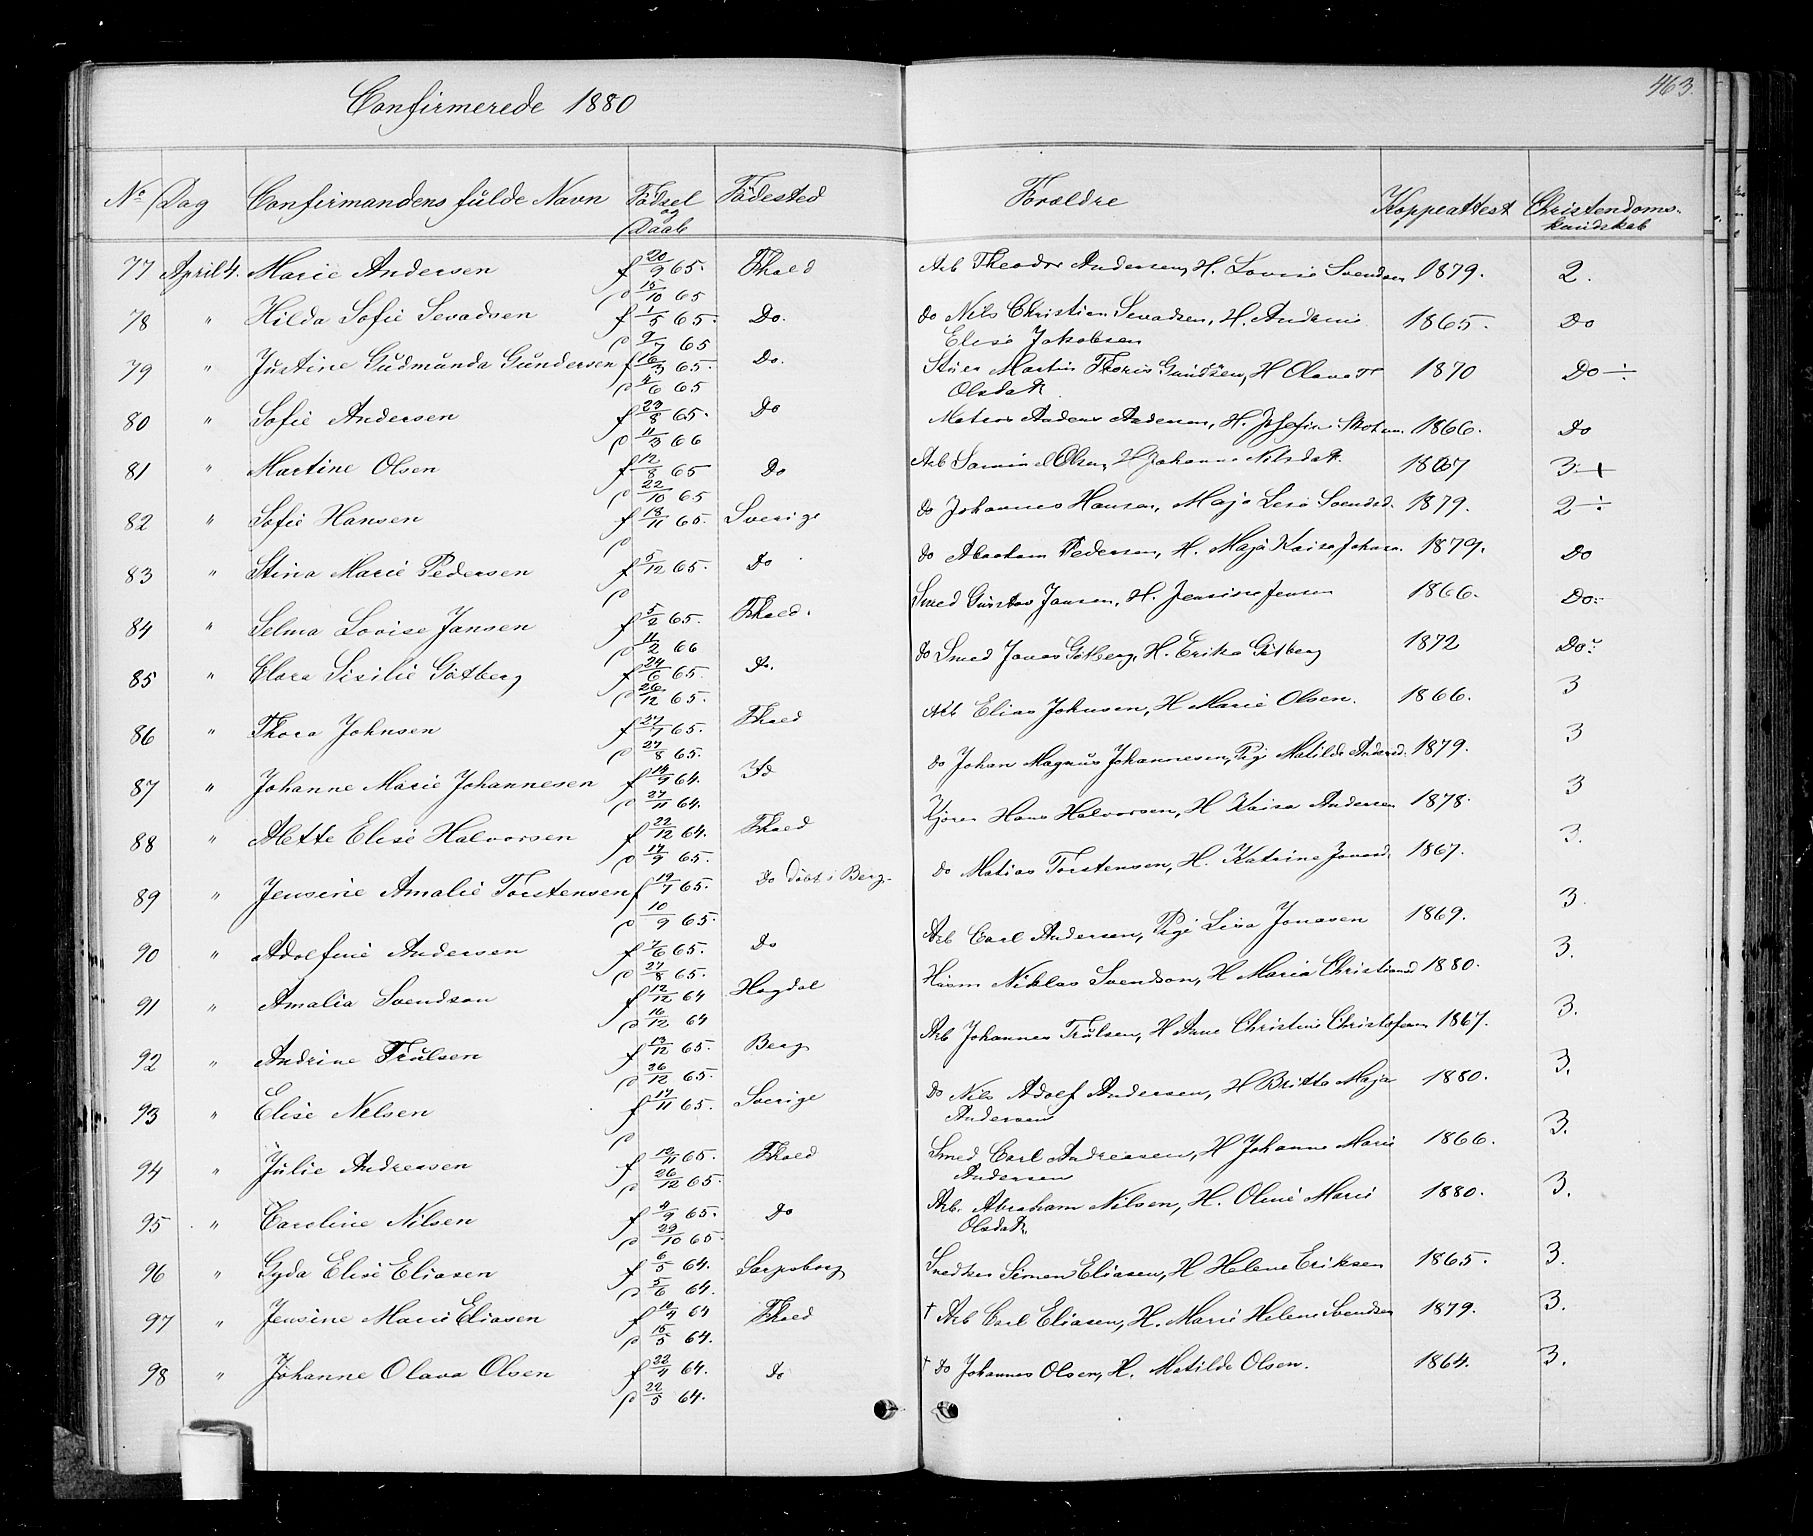 463.
Confirmerede 1880
No Dag Confirmandens fulde Navn Födsel og Daab Födested Forældre Koppeattest Christendomskundskab
77 April 4. Marie Andersen f 20/9 65. Fhald Arb Theodor Andersen, H. Lovise Svendsen 1879. 2.
D 15/10 65
78 " Hilda Sofie Sevadsen f 1/5 65. Do. Do Nils Christian Sevadsen, H. Andrine 1865. Do
D 2/7 65 Elise Jakobsen
79 " Justine Gudmunda Gundersen f 16/3 65. Do. Martin Gundsen, H Olava 1870 Do ÷
D 4/6 65 Olsdatr
80 " Sofie Andersen f 23/8 65. Do Matros Anders Andersen, H. Josefine 1866. Do
D 11/3 66
81 " Martine Olsen f 12/8 65 Do Arb Samuel Olsen, H Johanne Nilsdatr. 1867 3 +
D 22/10 65
82 " Sofie Hansen f 18/11 65. Sverige Do Johannes Hansen, Maja Lisa Svensd. 1879. 2 ÷
D
83 " Stina Marie Pedersen f 5/12 65. Do Do Abraham Pedersen, H. Maja Kaisa Johans. 1879. Do
D
84 " Selma Lovise Jansen f 5/2 65. Fhald. Smed Gustav Jansen, H. Jensine Jensen 1866. Do÷
D 11/2 66
85 " Clara Sisilie Götberg f 24/6 65. Do. Do Smed Jonas Götberg, H. Erika Götberg 1872 Do÷
D 26/12 65.
86 " Thora Johnsen f 27/1 65. Fhald Arb Elias Johnsen, H Marie Olsen. 1866. 3
D 27/8 65.
87 " Johanne Marie Johannesen f 14/9 64. Id Do Johan Magnus Johannesen, Pig Matilde Andersd. 1879. 3
D 27/11 64.
88 " Mette Elise Halvorsen f 22/12 64. Fhald Kjörer Hans Halvorsen, H Kaisa Andersen 1878. 3
D 17/9 65.
89 " Jensine Amalie Torstensen f 19/7 65. Do döbt i Berg. Do Matias Torstensen, H. Katrine Jonasd. 1867. 3.
D 10/9 65.
90 " Adolfine Andersen f 7/6 65. Do Arb Carl Andersen, Pige Lisa Jonasen 1869. 3.
D 27/8 65.
91 " Amalia Svendsen f 12/12 64 Hogdal Huusm Niklas Svendson, H Maria Christiansd 1880. 3.
D 16/12 64
92 " Andrine Trulsen f 13/12 65. Berg Arb Johannes Trulsen, H Anne Christine Christofersen 1867. 3.
D 26/12 65.
93 " Elise Nelsen f 17/11 65. Sverige Do Nils Adolf Andersen, H Britta Maja 1880. 3.
D Andersen
94 " Julie Andreasen f 12/11 65. Fhald Smed Carl Andreasen, H Johanne Marie 1866. 3.
D 26/12 65. Andersen
95 " Caroline Nilsen f 2/9 65. Do Arb. Abraham Nilsen, H. Oline Marie 1880. 3.
D 29/10 65. Olsdatr.
96 " Gyda Elise Eliasen f 6/5 64. Sarpsborg Snedker Simon Eliasen, H Helene Eriksen 1865. 3.
D 5/6 64.
97 " Jensine Marie Eliasen f 10/4 64 Fhald † Arb Carl Eliasen, H. Marie Helene Svendsen 1879. 3.
D 15/5 64.
98 " Johanne Olava Olsen f 22/4 64. Do † Do Johannes Olsen, H. Matilde Olsen. 1864. 3.
D 22/5 64.